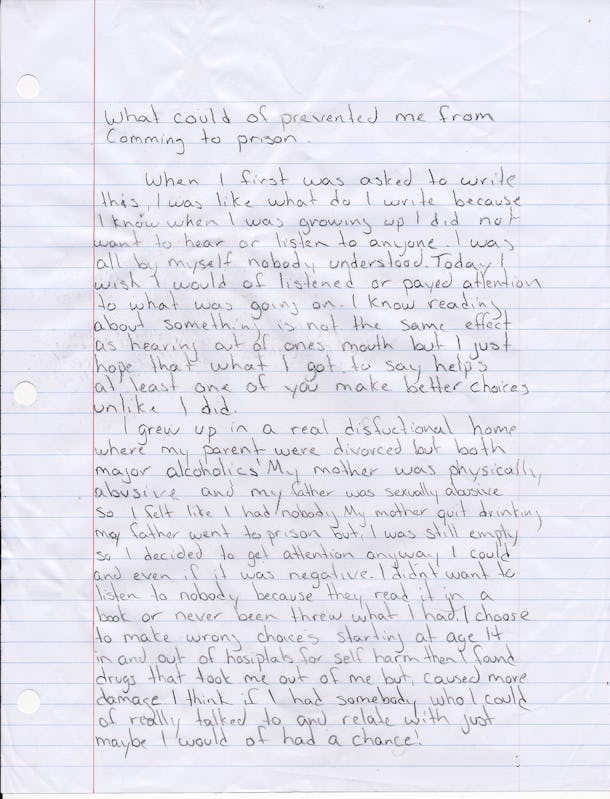 What could of prevented me from
Comming to prison.
When I first was asked to write
this, I was like what do I write because
I know when I was growing up I did not
want to hear or listen to anyone. I was
all by myself nobody understood. Today I
wish I would of listened or payed attention
to what was going on. I know reading
about something is not the same effect
as hearing out of ones mouth but I just
hope that what I got to say helps
at least one of you make better choices
unlike I did.
I grew up in a real disfuctional home
where my parent were divorced but both
major alcoholics! My mother was physically
abusive and my father was sexually abusive
so I felt like I had nobody. My mother quit drinking
my father went to prison but, I was still empty
so I decided to get attention anyway I could
and even if it was negative. I didn't want to
listen to nobody because they read it in a
book or never been threw what I had. I choose
to make wrong choices starting at age 14
in and out of hosiptals for self harm then I found
drugs that took me out of me but, caused more
damage. I think if I had somebody who I could
of really talked to and relate with just
maybe I would of had a chance!